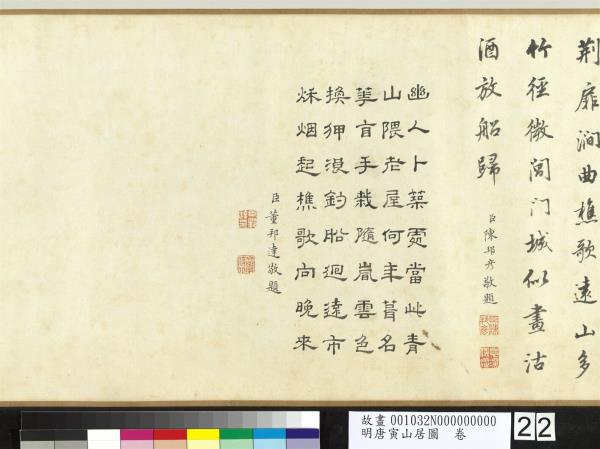 荆扉澗曲樵歌遠山多
竹徑微閶门城似畫沽
酒放船歸
臣陳邦彦敬題
幽人卜築處當此青
山隈老屋何年葺名
華手栽隨嵐雲色
換狎浪釣船迴遠市
烟起樵歌向晚來
臣董邦達敬題
故畫 001032N000000000
明唐寅山居圖 卷
22